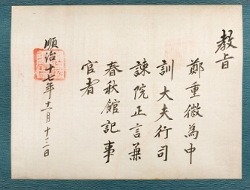 教旨
鄭重徽為中
訓大夫行司
諫院正言兼
春秋館記事
官者
順治十七年十一月十二日